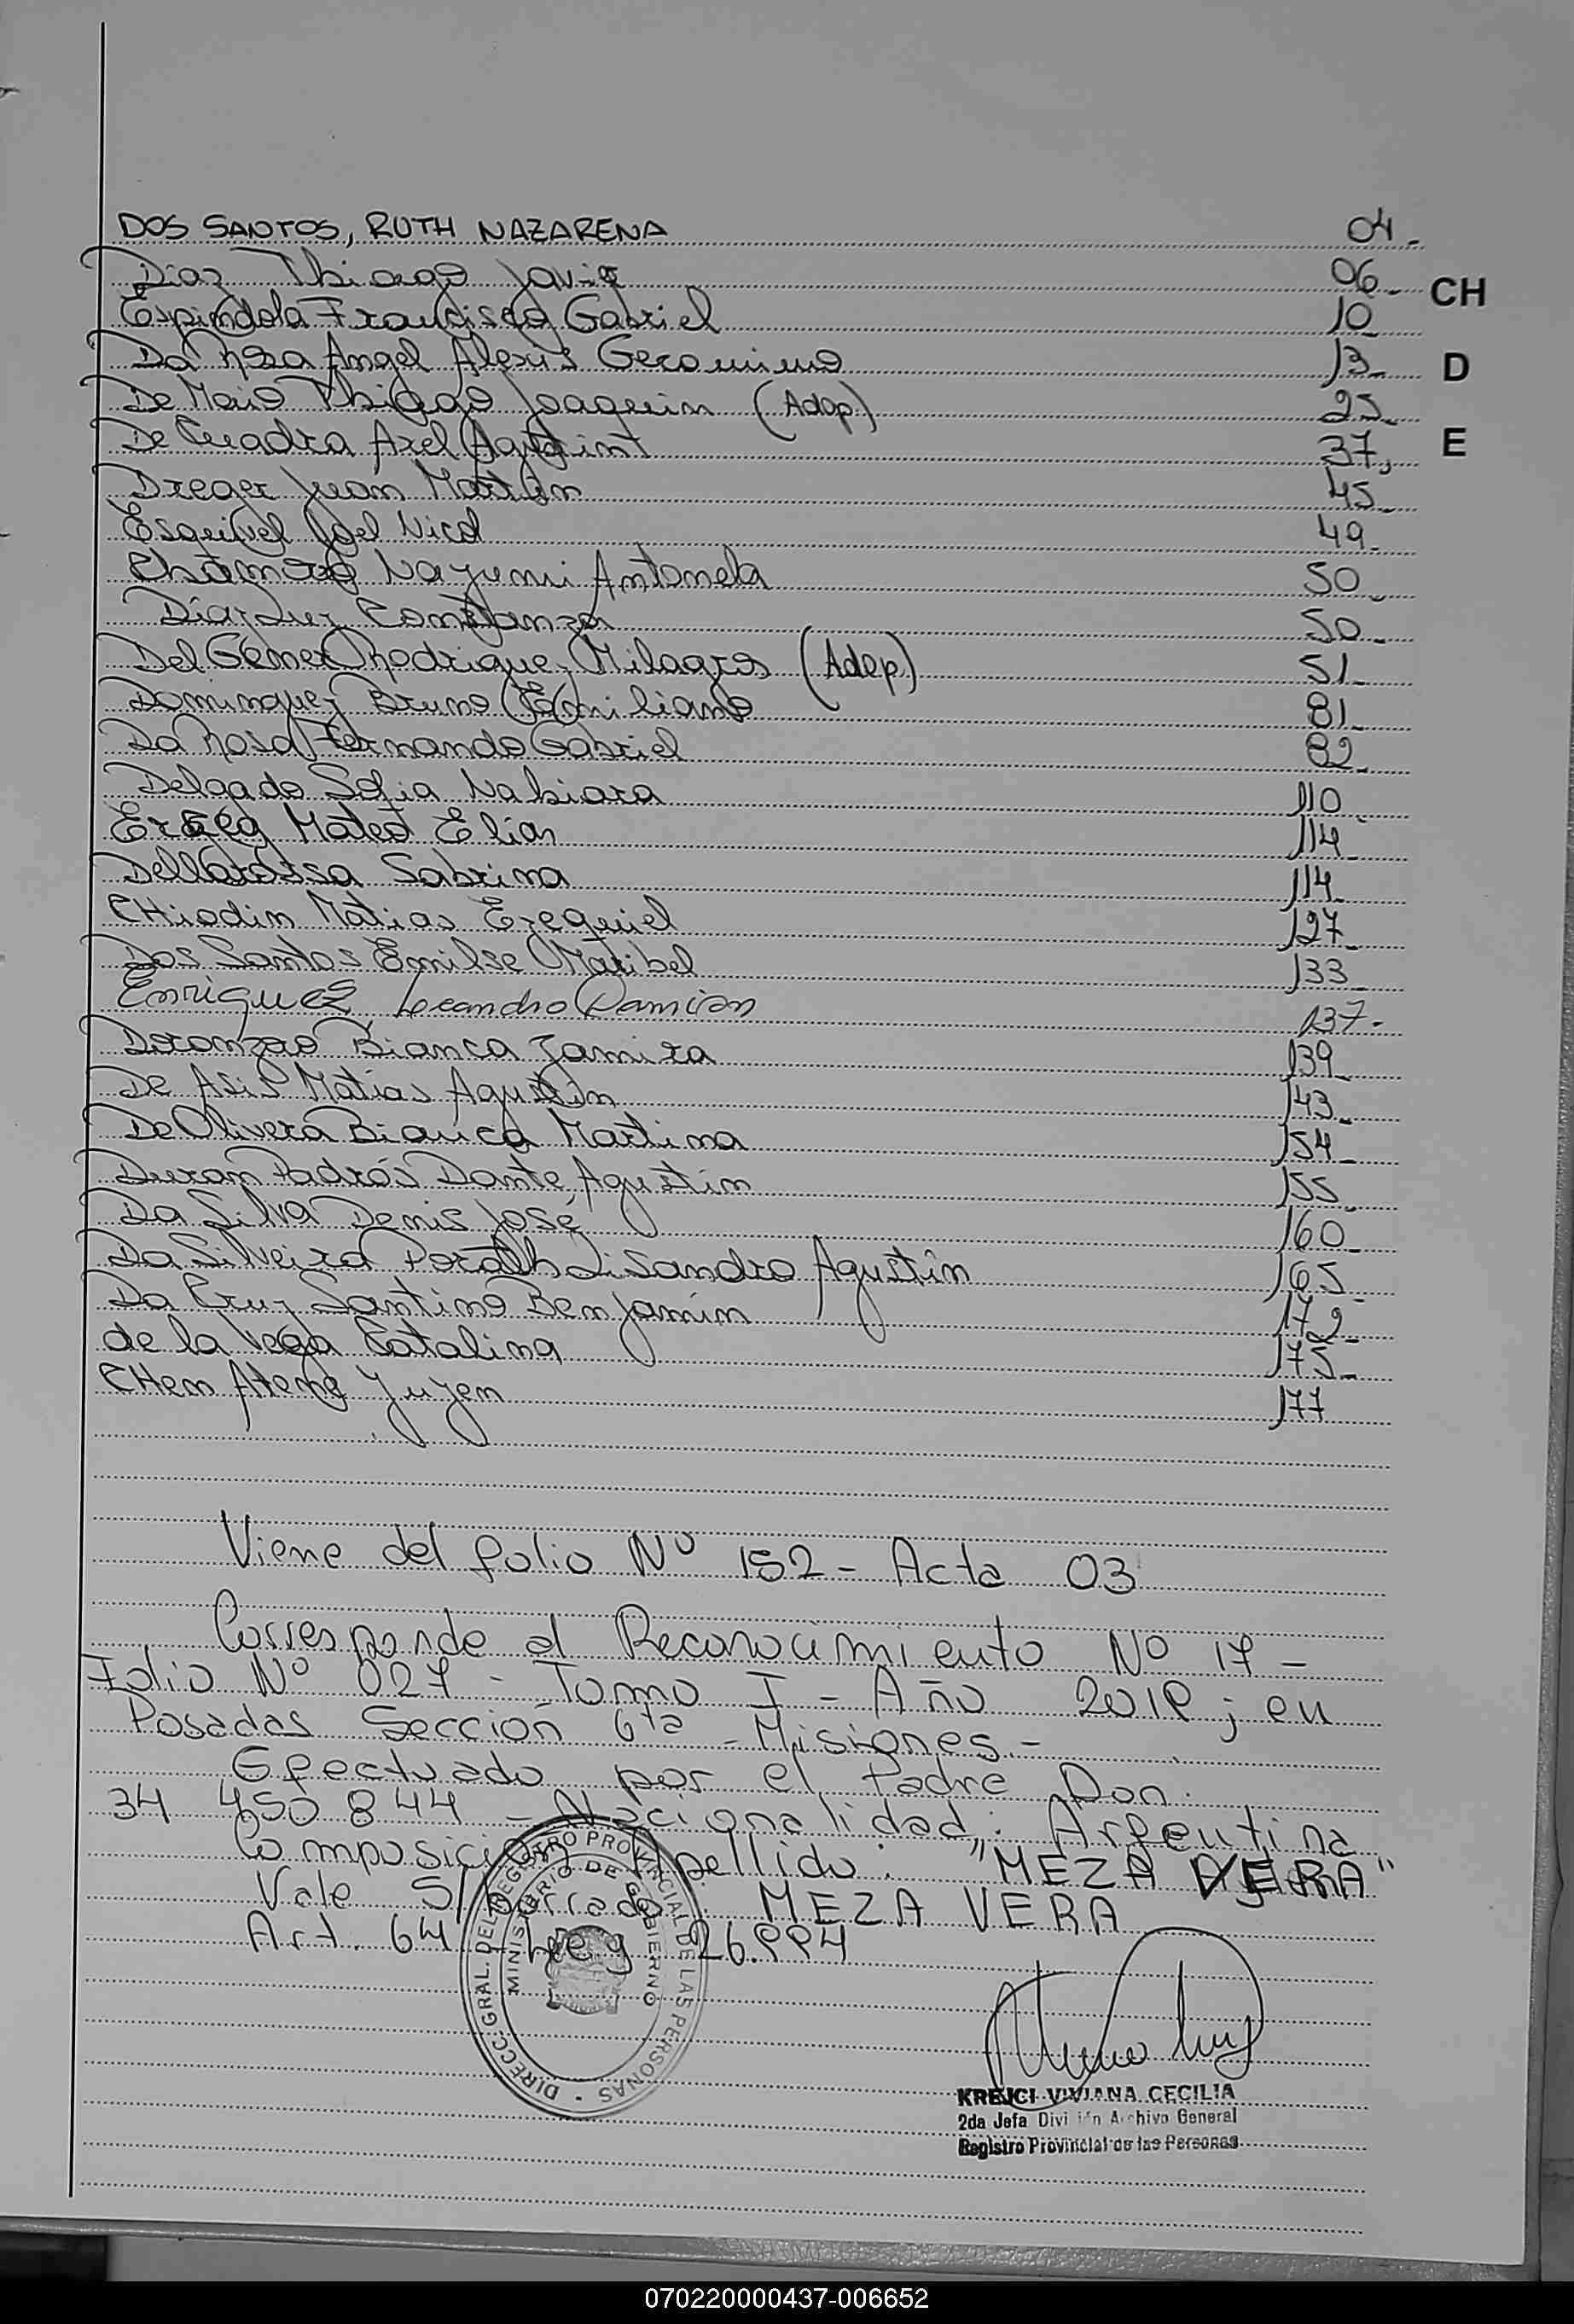 DOS SANTOS, RUTH NAZARENA 04-
Diaz Thiago Javier 06-
CH
Espindola Francisco Gabriel 10
Da Rosa Angel Alexis Geronimo 13-
D
De Maio Thiago Joaquin (Adop) 25-
De Cuadra Axel Agustin 37,
E
Dreger Juan Martin 45-
Esquivel Joel Nicol 49-
Nayumi Antonela 50-
Díaz Luz Constanza 50-
Del Gener Rodriguez Milagros (Adop) 51-
Dominguez Bruno Emiliano 81-
Da Rosa Fernando Gabriel 82-
Delgado Sofia Nabiara 110-
Mateo Elian 114-
Dellarossa Sabrina 114-
CHiodin Matias Ezequiel 127-
Dos Santos Emilse Maribel 133-
Enriquez Leandro Damian 137-
Doronzoro Bianca Jamira 139-
De Asis Matias Agustín 143-
De Olivera Bianca Martina 154-
Duran Padrós Dante Agustín 155-
Da Silva Denis José 160-
Da Silveira Porath Lisandro Agustín 165-
Da Cruz Santino Benjamín 172-
de la Vega Catalina 175-
CHem Yuyen 177
Viene del folio Nº 152 - Acta 03
Corresponde al Reconocimiento Nº 17 -
Folio Nº 027 - Tomo I - Año 2019; en
Posadas Sección 6ta - Misiones -
Efectuado por el Padre Don:
34 450 844 - Nacionalidad: Argentina
Composición Apellido: "MEZA VERA"
Vale S/ borrado: MEZA VERA
Art. 64 Ley 26.994
DIRECC. GRAL. DEL REGISTRO PROVINCIAL DE LAS PERSONAS -
MINISTERIO DE GOBIERNO
KREJCI VIVIANA CECILIA
2da Jefa División Archivo General
Registro Provincial de las Personas
070220000437-006652